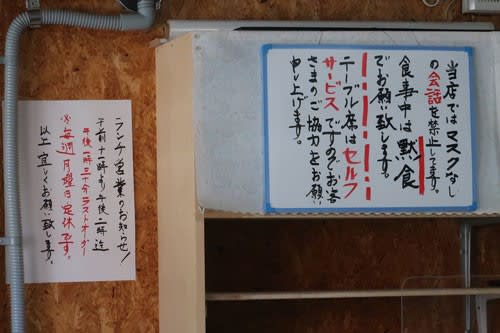 当店ではマスクなし
の会話を禁止してます。
食事中は黙食
でお願い致します。
テーブル席はセルフ
サービスですのでお客
さまのご協力をお願い
申し上げます。
ランチ営業のお知らせ!
午前十一時より午後二時迄
午後一時三十分ラストオーダー
※毎週月曜日定休です。
以上宜しくお願い致します。